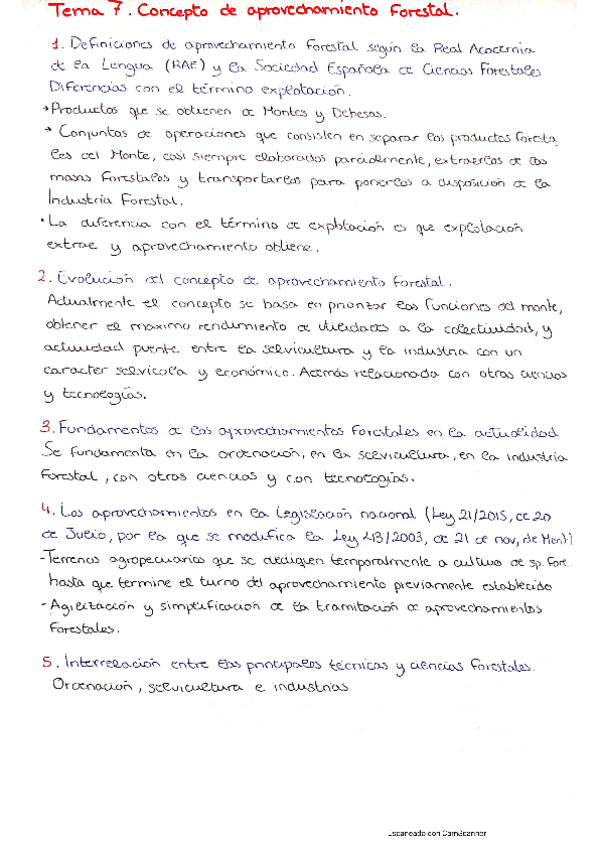 Tema 7. Concepto de aprovechamiento Forestal.
1. Definiciones de aprovechamiento forestal según la Real Academia
de la Lengua (RAE) y la Sociedad Española de Ciencias Forestales
Diferencias con el término explotación.
→Productos que se obtienen de Montes y Dehesas.
→ Conjuntos de operaciones que consisten en separar los productos foresta
les del Monte, casi siempre elaborados parcialmente, extraerlos de las
masas forestales y transportarlos para ponerlos a disposición de la
Industria Forestal.
· La diferencia con el término de explotación es que explotación
extrae y aprovechamiento obtiene.
2. Evolución del concepto de aprovechamiento forestal.
Actualmente el concepto se basa en priorizar las funciones del monte,
obtener el maximo rendimiento de utilidades a la colectividad, y
actividad puente entre la selvicultura y la industria con un
caracter selvícola y económico. Además relacionada con otras ciencias
y tecnologías.
3. Fundamentos de los aprovechamientos forestales en la actualidad
Se fundamenta en la ordenación, en la selvicultura, en la industria
forestal, con otras ciencias y con tecnologías.
4. Los aprovechamientos en la legislación nacional (Ley 21/2015, de 20
de Julio, por la que se modifica la Ley 43/2003, de 21 de nov, de Mont)
-Terrenos agropecuarios que se dediquen temporalmente a cultivo de sp. Fore.
hasta que termine el turno del aprovechamiento previamente establecido
- Agilización y simplificación de la tramitación de aprovechamientos
forestales.
5. Interrelación entre las principales técnicas y ciencias forestales.
Ordenación, selvicultura e industrias
Escaneado con CamScanner